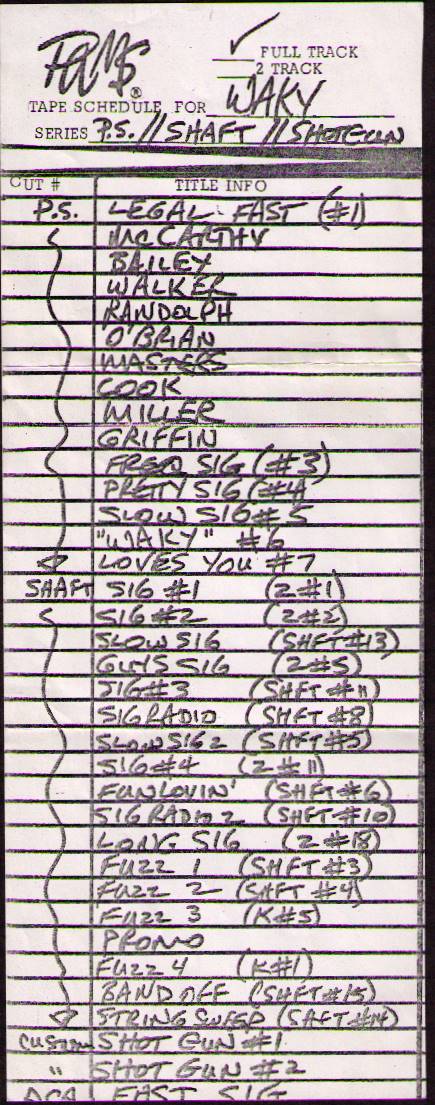 PAMS®
✓ FULL TRACK
2 TRACK
TAPE SCHEDULE FOR WAKY
SERIES P.S. // SHAFT // SHOTGUN
CUT # TITLE INFO
P.S. LEGAL FAST (#1)
McCARTHY
BAILEY
WALKER
RANDOLPH
O'BRIAN
MASTERS
COOK
MILLER
GRIFFIN
SIG (#3)
PRETTY SIG (#4
SLOW SIG # 5
"WAKY" #6
LOVES YOU #7
SHAFT SIG #1 (Z#1)
SIG #2 (Z#2)
SLOW SIG (SHFT#13)
GUYS SIG (Z#5)
SIG#3 (SHFT #11)
SIG RADIO (SHFT #8)
SLOW SIG 2 (SHFT#5)
SIG #4 (Z#11)
FUN LOVIN' (SHFT#6)
SIG RADIO 2 (SHFT#10)
LONG SIG (Z#18)
FUZZ 1 (SHFT #3)
FUZZ 2 (SHFT #4)
FUZZ 3 (K#5)
PROMO
FUZZ 4 (K#1)
BAND OFF (SHFT#15)
STRING SWEEP (SAFT #14)
CUSTOM SHOT GUN #1
" SHOT GUN #2
FAST SIG